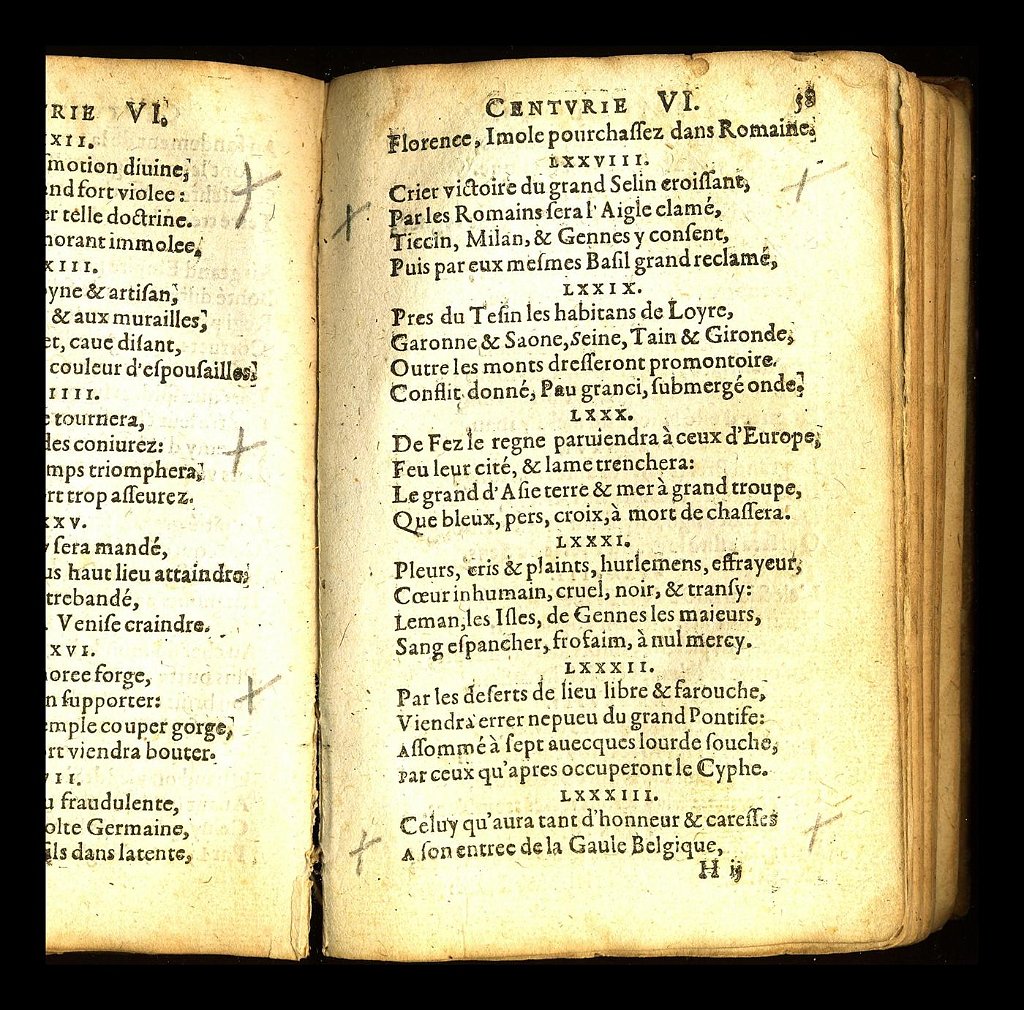 RIE VI.
XII.
ſmotion diuine,
nd fort violee:
er telle doctrine.
norant immolee,
XIII.
oyne & artiſan,
& aux murailles,
et, caue diſant,
couleur d'eſpouſailles,
IIII.
e tournera,
des coniurez:
mps triomphera,
ort trop aſſeurez.
XXV.
ſera mandé,
us haut lieu attaindre,
trebandé,
. Veniſe craindre.
XVI.
oree forge,
n ſupporter:
emple couper gorge,
ort viendra bouter.
VII.
u fraudulente,
olte Germaine,
ils dans latente,
CENTVRIE VI. 58
Florence, Imole pourchaſſez dans Romaine,
LXXVIII.
Crier victoire du grand Selin croiſſant,
Par les Romains ſera l'Aigle clamé,
Ticcin, Milan, & Gennes y conſent,
Puis par eux meſmes Baſil grand reclamé,
LXXIX.
Pres du Teſin les habitans de Loyre,
Garonne & Saone, Seine, Tain & Gironde,
Outre les monts dreſſeront promontoire.
Conflit donné, Pau granci, ſubmergé onde,
LXXX.
De Fez le regne paruiendra à ceux d'Europe,
Feu leur cité, & lame trenchera:
Le grand d'Aſie terre & mer à grand troupe,
Que bleux, pers, croix, à mort de chaſſera.
LXXXI.
Pleurs, cris & plaints, hurlemens, effrayeur,
Cœur inhumain, cruel, noir, & tranſy:
Leman, les Iſles, de Gennes les maieurs,
Sang eſpancher, frofaim, à nul mercy.
LXXXII.
Par les deſerts de lieu libre & farouche,
Viendra errer nepueu du grand Pontife:
Aſſommé à ſept auecques lourde ſouche,
Par ceux qu'apres occuperont le Cyphe.
LXXXIII.
Celuy qu'aura tant d'honneur & careſſes
A ſon entree de la Gaule Belgique,
H ij